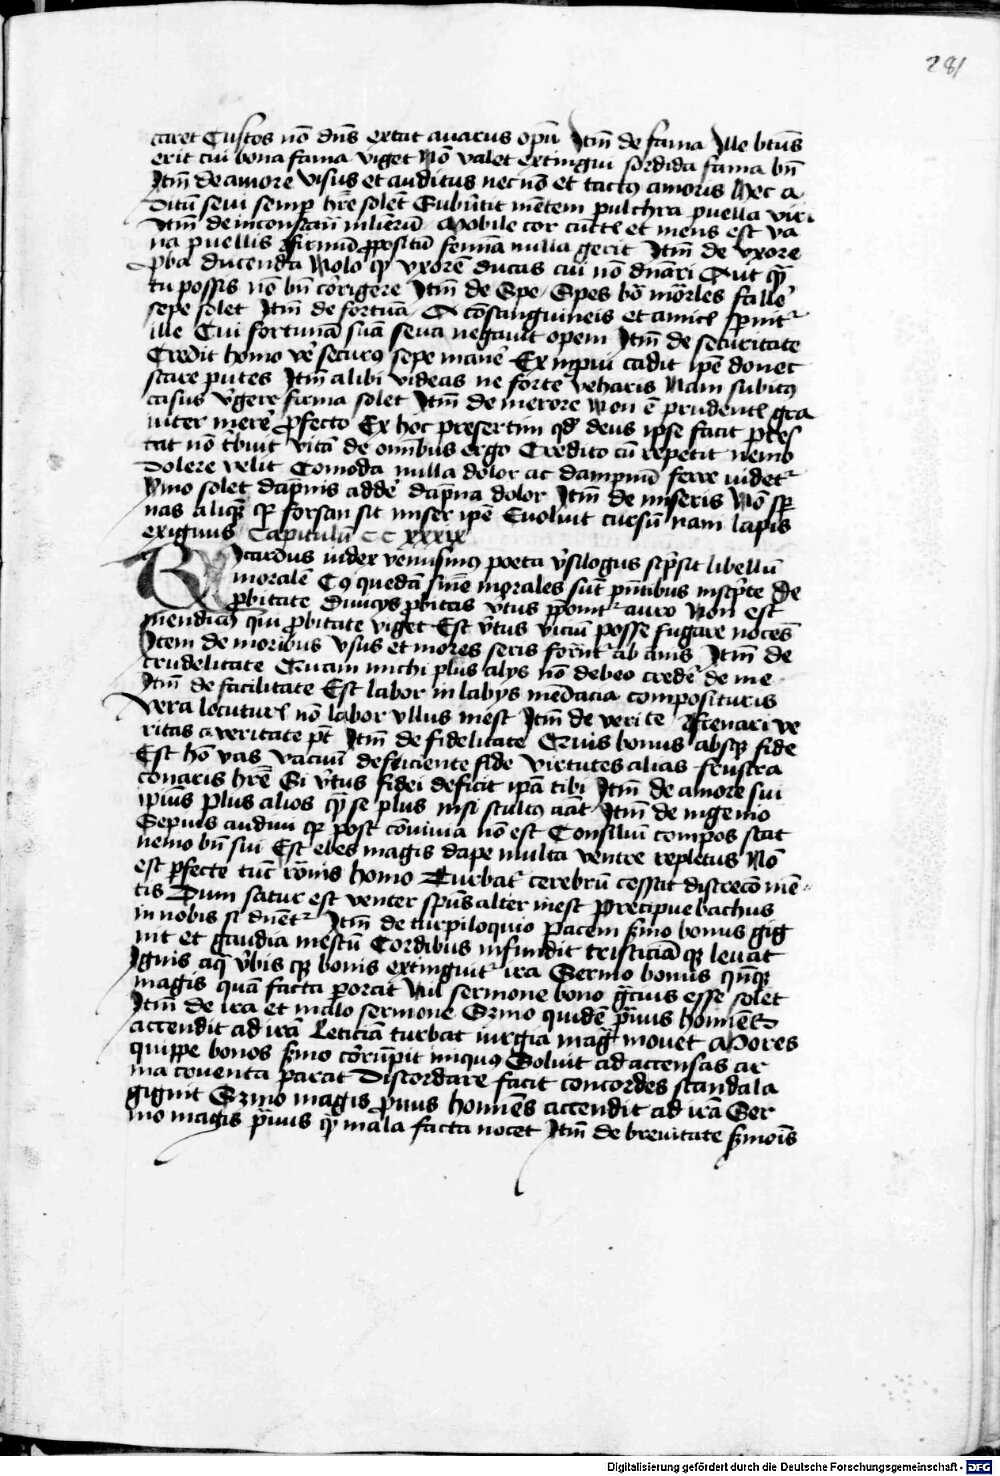 281
caret Custos nō dn̄s extat avarus opū Itm̄ de fama Ille btūs
erit cui bona fama viget Nō valet extingui sordida fama bn̄
Itm̄ de amore Visus et auditus nec nō et tactꝯ amoris Nec a
ditū sevi semꝑ hr̄e solet Subūtit mētem pulchra puella viri
Itm̄ de inconstan̄ mlierū Mobile cor et mens est va
na puellis Firmū ꝓpositū femīa nulla gerit Itm̄ de vxore
ꝓba ducenda Nolo ꝙ vxorē ducas cui nō dn̄ari Aut
tu possis nō bn̄ corrigere Itm̄ de Spe Spes bō mōrles falle
sepe solet Itm̄ de fortūa A cōsanguineis et amicis spnit
ille Cui fortuna suā seua negauit opem Itm̄ de securitate
Credit homo se securꝯ sepe manē Ex inpui cadit ipē donec
stare putes Itm̄ alibi videas ne forte veharis Nam subitꝯ
casus firma solet Itm̄ de merore Non ē prudentis gra
uiter merē ꝓfecto Ex hoc presertim qd̄ deus ipse facit ptes
tat nō tbuit vitā de om̄ibus ergo Credito cū repetit nemo
dolere velit Comoda nulla dolor ac dampnū ferre uidet
Ymo solet dāpnis addē dāpna dolor Itm̄ de miseris Nō sp
nas aliquē ꝙ forsan sit miser ipē Euoluit cursū nam lapis
exiguus Capitulū CCxxxix
Ricardus iudex venusinꝯ poeta sc̄psit libellū
moralē Cꝯ quedā sn̄e morales sūt pn̄tibus inscp̄te De
ꝓbitate Diuicijs ꝓbitas v̄tus p̄ponit auro Non est
mendicꝯ qui ꝓbitate viget Est v̄tus viciū posse fugare nocēs
Item de moribus Vsus et mores seris ab anis Itm̄ de
crudelitate Quam michi plus alijs nō debeo credē de me
Itm̄ de facilitate Est labor in labijs mēdacia composituris
Vera locuturis nō labor vllus inest Itm̄ de veri te ve
ritas a veritate pt̄ Itm̄ de fidelitate Quis bonus absqꝫ fide
Est hō vas vacuū deficiente fide virtutes alias frustra
conaris hr̄e Si v̄tus fidei deficit ipā tibi Itm̄ de amore sui
ipius plus alios qꝫ se plus nisi stultꝯ amat Itm̄ de ingenio
Sepius audiui ꝙ post cōuiuia nō est Consilui compos stat
nemo bn̄ sui Est ebes magis dape multa ventre repletus Nō
est pfecte tūc homo Turbat cerebrū cessat discrecō mē
tis Dum satur est venter spūs alter inest Precipue bachus
in nobis si dn̄et Itm̄ de turpiloquio Pacem smo bonus gig
nit et gaudia mestū Cordibus infundit tristiciāqꝫ leuat
Ignis aq v̄bis qꝫ bonis extinguit ira Sermo bonus
magis quā facta ꝑorat Nil sermone bono gcius esse solet
Itm̄ de ira et malo sermone Smo quidē puus homiēs
accendit ad irā Leticiā turbat iurgia mag mouet Mores
quippe bonos smo corrūpit iniquꝯ Soluit ad accensas ar
ma couenta parat Discordare facit concordes scandala
gignit Smo magis puus homiēs accendit ad irā Ser
mo magis puus qꝫ mala facta nocet Itm̄ de breuitate smois
Digitalisierung gefördert durch die Deutsche Forschungsgemeinschaft - DFG